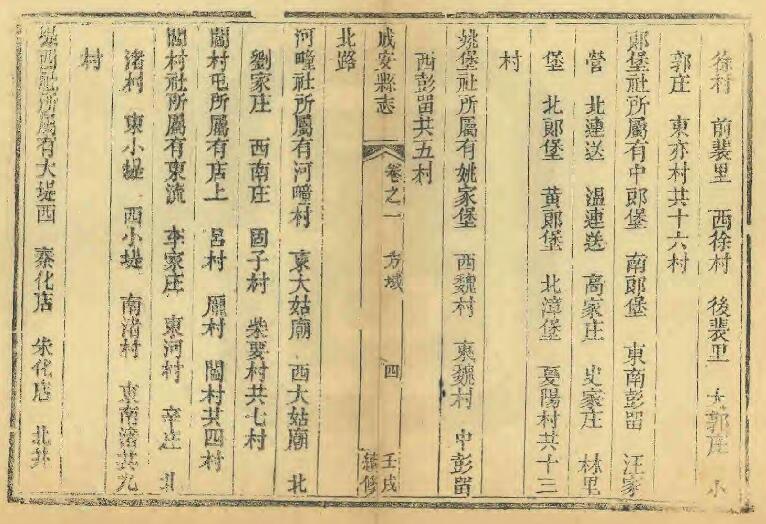 徐村　前裴里　西徐村　後裴里　大郭庄　小
郭庄　東亦村共十六村
郎堡社所屬有中郎堡　南郎堡　東南彭留　汪家
營　北連送　溫連送　高家庄　史家庄　林里
堡　北郎堡　黃郎堡　北漳堡　夏陽村共十三
村
姚堡社所屬有姚家堡　西魏村　東魏村　中彭留
西彭留共五村
成安縣志　卷之一　方域　四　壬戌續修
北路
河疃社所屬有河疃村　東大姑廟　西大姑廟　北
劉家庄　西南庄　固子村　柴要村共七村
閻村屯所屬有店上　呂村　龐村　閻村共四村
閻村社所屬有東流　李家庄　東河村　辛庄　北
渚村　東小堤　西小堤　南渚村　東南渚共九
村
堤西社所屬有大堤西　秦化店　朱化店　北井